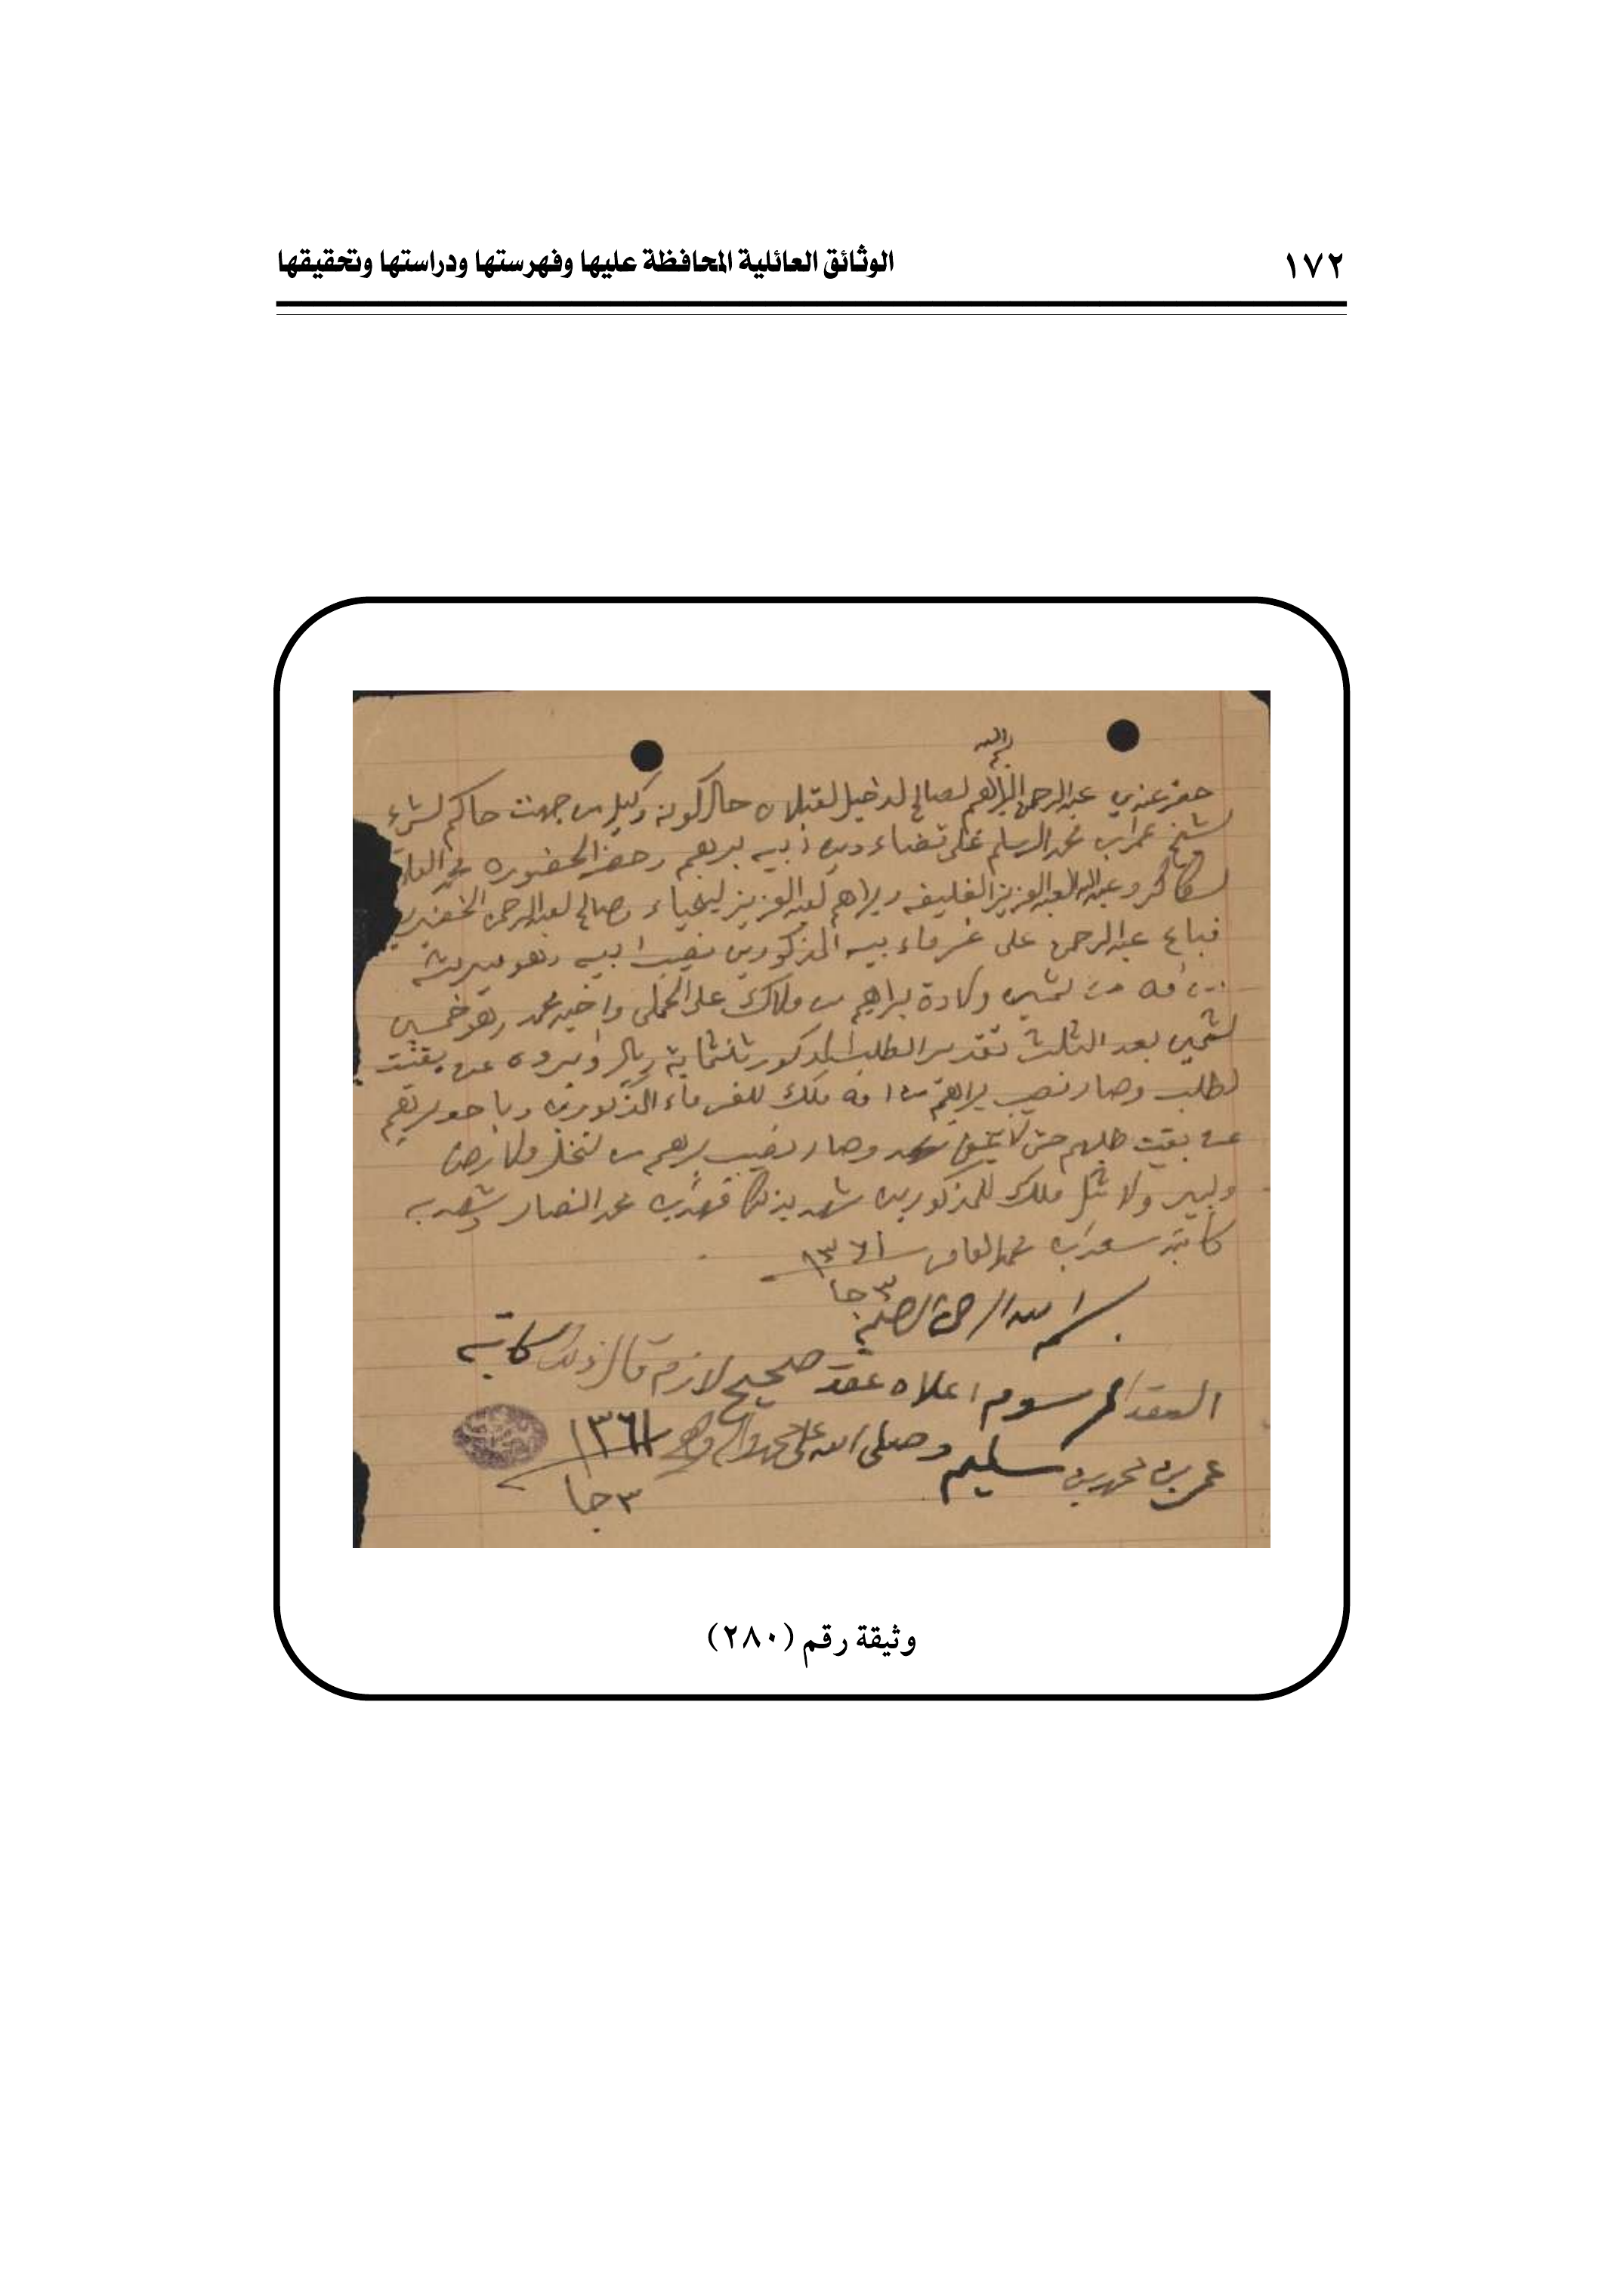 ١٧٢
الوثائق العائلية المحافظة عليها وفهرستها ودراستها وتحقيقها
حضر عندي عبدالرحمن البراهيم لصالح لدخيل لقبلان حال كونه وكيل من جهت حاكم لشرع
لشيخ عمر ابن محمد السليم على قضاء دين أبيه بريهم وحضر الحضوره محمد
لشاكر وعبدالله لعبدالعزيز الخليفه وبراهم لعبدالعزيز ليحياء وصالح لعبدالرحمن الخضيري
فباع عبدالرحمن على غرماء بيه المذكورين نصيب ابيه وهو ميريثه
من أمه من لثمين ولادة براهيم من ملاك علي واخيه محمد وهو خمسين
لثمين بعد الثلث تقدير الطلب المذكور ثلثماية ريال وابروه عن بقيت
لطلب وصار نصيب براهيم من امه ملك للغرماء المذكورين
عن بقيت طلبهم حتى لا يبقى وصار نصيب بريهم من لنخل ولارض
ولبير ولاثل ملك للمذكورين شهد بذلك فهد ابن محمد النصار وشهد به
كاتبه سعد ابن محمد العامر ١٣٦١
٣ جا
بسم الله الرحمن الرحيم
العقد المرسوم اعلاه عقد صحيح لازم قال ذلك كاتبه
عمر بن محمد بن سليم وصلى الله على محمد وآله وصحبه ١٣٦١
٣ جا
وثيقة رقم (٢٨٠)